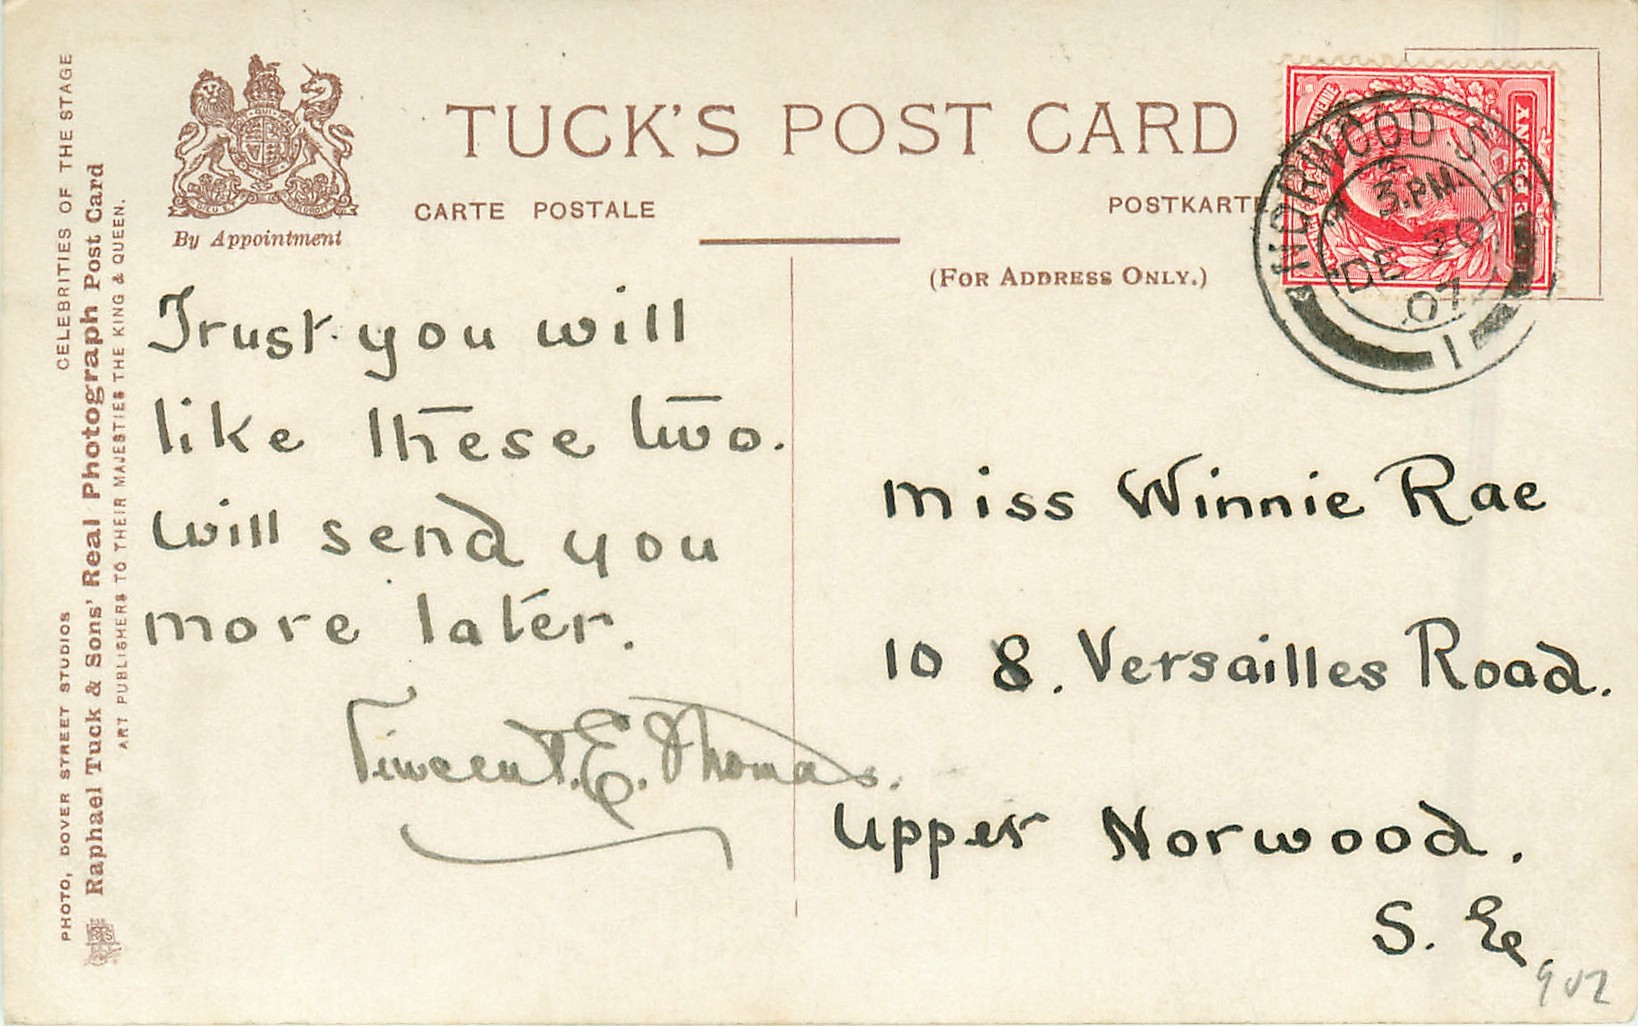 TUCK'S POST CARD
CARTE POSTALE
POSTKARTE
By Appointment
(FOR ADDRESS ONLY.)
CELEBRITIES OF THE STAGE
PHOTO, DOVER STREET STUDIOS
Raphael Tuck & Sons' Real Photograph Post Card
ART PUBLISHERS TO THEIR MAJESTIES THE KING & QUEEN.
NORWOOD S
3.PM
DE 20
07
1
PENNY
Trust you will
like these two.
will send you
more later.
Vincent. E. Thomas.
Miss Winnie Rae
10 8. Versailles Road.
Upper Norwood.
S. E.
902